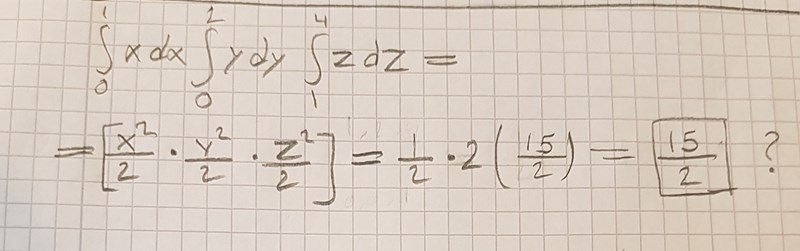 ∫₀¹ x dx ∫₀² y dy ∫₁⁴ z dz =
= [x²/2 · y²/2 · z²/2] = 1/2 · 2 (15/2) = 15/2 ?